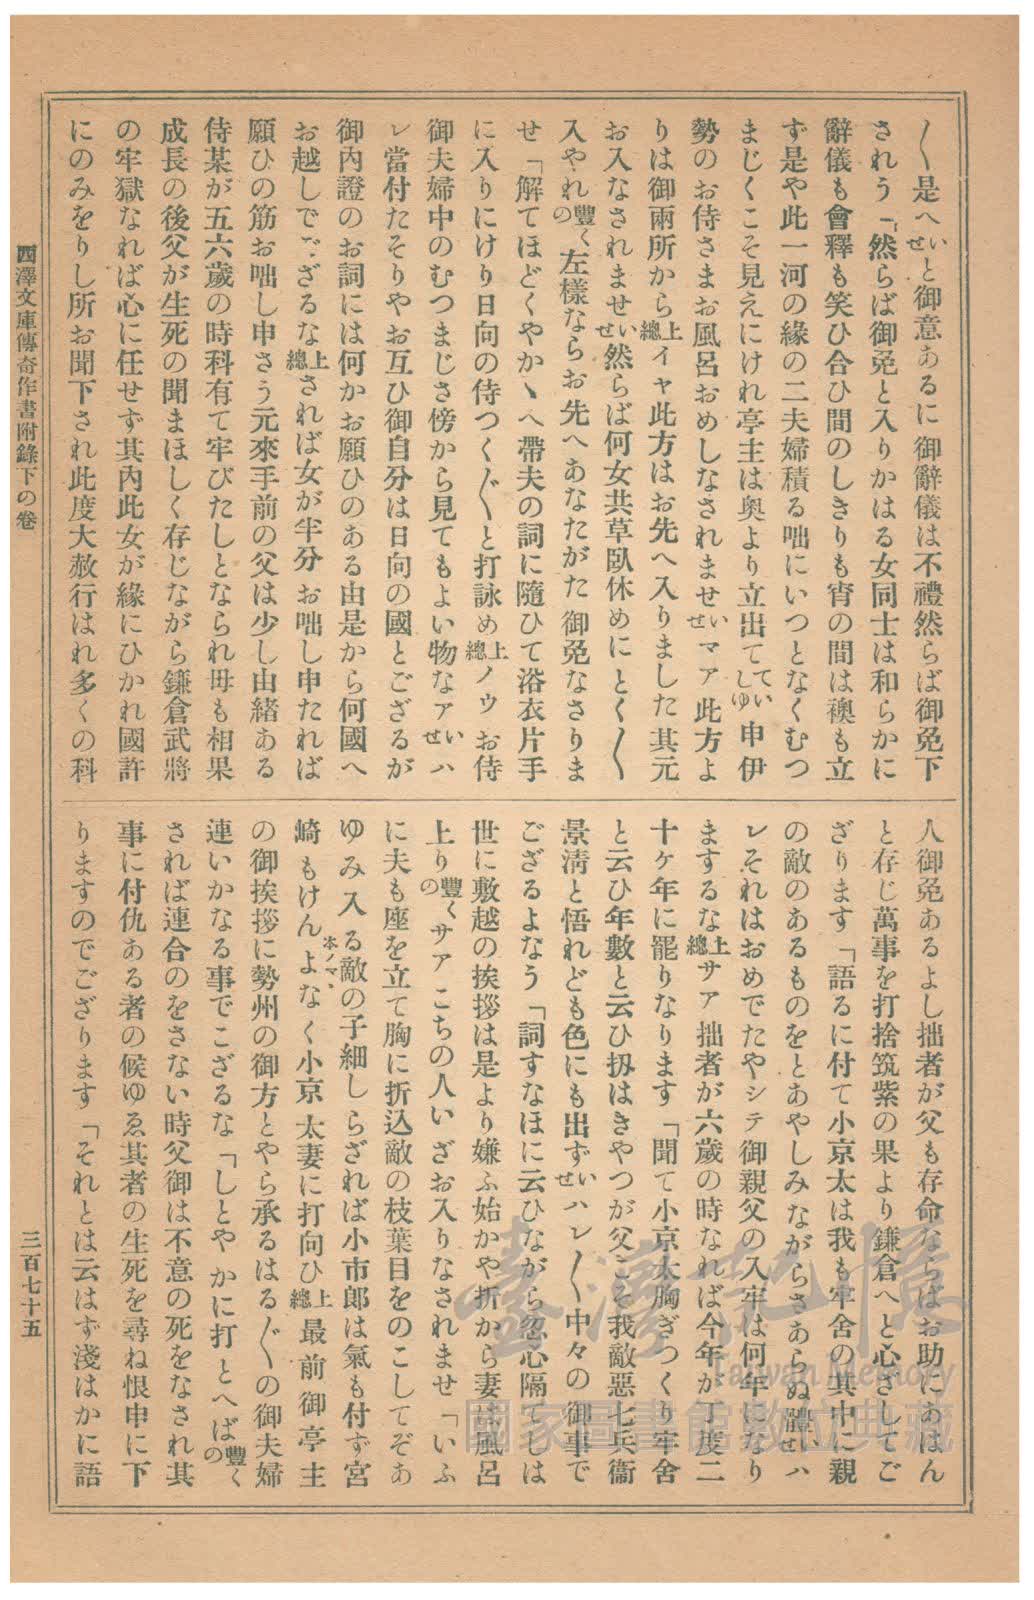 〳〵是へいせと御意あるに御辭儀は不禮然らば御免下
されう「然らば御免と入りかはる女同士は和らかに
辭儀も會釋も笑ひ合ひ間のしきりも宵の間は襖も立
ず是や此一河の緣の二夫婦積る咄にいつとなくむつ
まじくこそ見えにけれ亭主は奥より立出てていしゆ申伊
勢のお侍さまお風呂おめしなされませいせマア此方よ
りは御兩所から上總イヤ此方はお先へ入りました其元
お入なされませせいせ然らば何女共草臥休めにとく〳〵
入やれの豐く左樣ならお先へあなたがた御免なさりま
せ「解てほどくやかゝへ帶夫の詞に隨ひて浴衣片手
に入りにけり日向の侍つく〴〵と打詠め上總ノウお侍
御夫婦中のむつまじさ傍から見てもよい物なアいせハ
レ當付たそりやお互ひ御自分は日向の國とござるが
御內證のお詞には何かお願ひのある由是から何國へ
お越しでござるな上總されば女が半分お咄し申たれば
願ひの筋お咄し申さう元來手前の父は少し由緖ある
侍某が五六歲の時科有て牢びたしとなられ母も相果
成長の後父が生死の聞まほしく存じながら鎌倉武將
の牢獄なれば心に任せず其內此女が緣にひかれ國許
にのみをりし所お聞下され此度大赦行はれ多くの科
人御免あるよし拙者が父も存命ならばお助にあはん
と存じ萬事を打捨筑紫の果より鎌倉へと心ざしてご
ざります「語るに付て小京太は我も牢舍の其中に親
の敵のあるものをとあやしみながらさあらぬ體いせハ
レそれはおめでたやシテ御親父の入牢は何年になり
まするな上總サア拙者が六歲の時なれば今年が丁度二
十ケ年に罷りなります「聞て小京太胸ぎつくり牢舍
と云ひ年數と云ひ扨はきやつが父こそ我敵惡七兵衞
景淸と悟れども色にも出ずいせハレ〳〵中々の御事で
ござるよなう「詞すなほに云ひながら忽心隔てしは
世に敷越の挨拶は是より嫌ふ始かや折から妻は風呂
上りの豐くサアこちの人いざお入りなされませ「いふ
に夫も座を立て胸に折込敵の枝葉目をのこしてぞあ
ゆみ入る敵の子細しらざれば小市郎は氣も付ず宮
崎もけん本ノマヽよなく小京太妻に打向ひ上總最前御亭主
の御挨拶に勢州の御方とやら承るはる〴〵の御夫婦
連いかなる事でござるな「しとやかに打とへば豐くの
されば連合のをさない時父御は不意の死をなされ其
事に付仇ある者の候ゆゑ其者の生死を尋ね恨申に下
りますのでござります「それとは云はず淺はかに語
西澤文庫傳奇作書附錄下の卷
三百七十五
臺灣記憶
Taiwan Memory
國家圖書館數位典藏